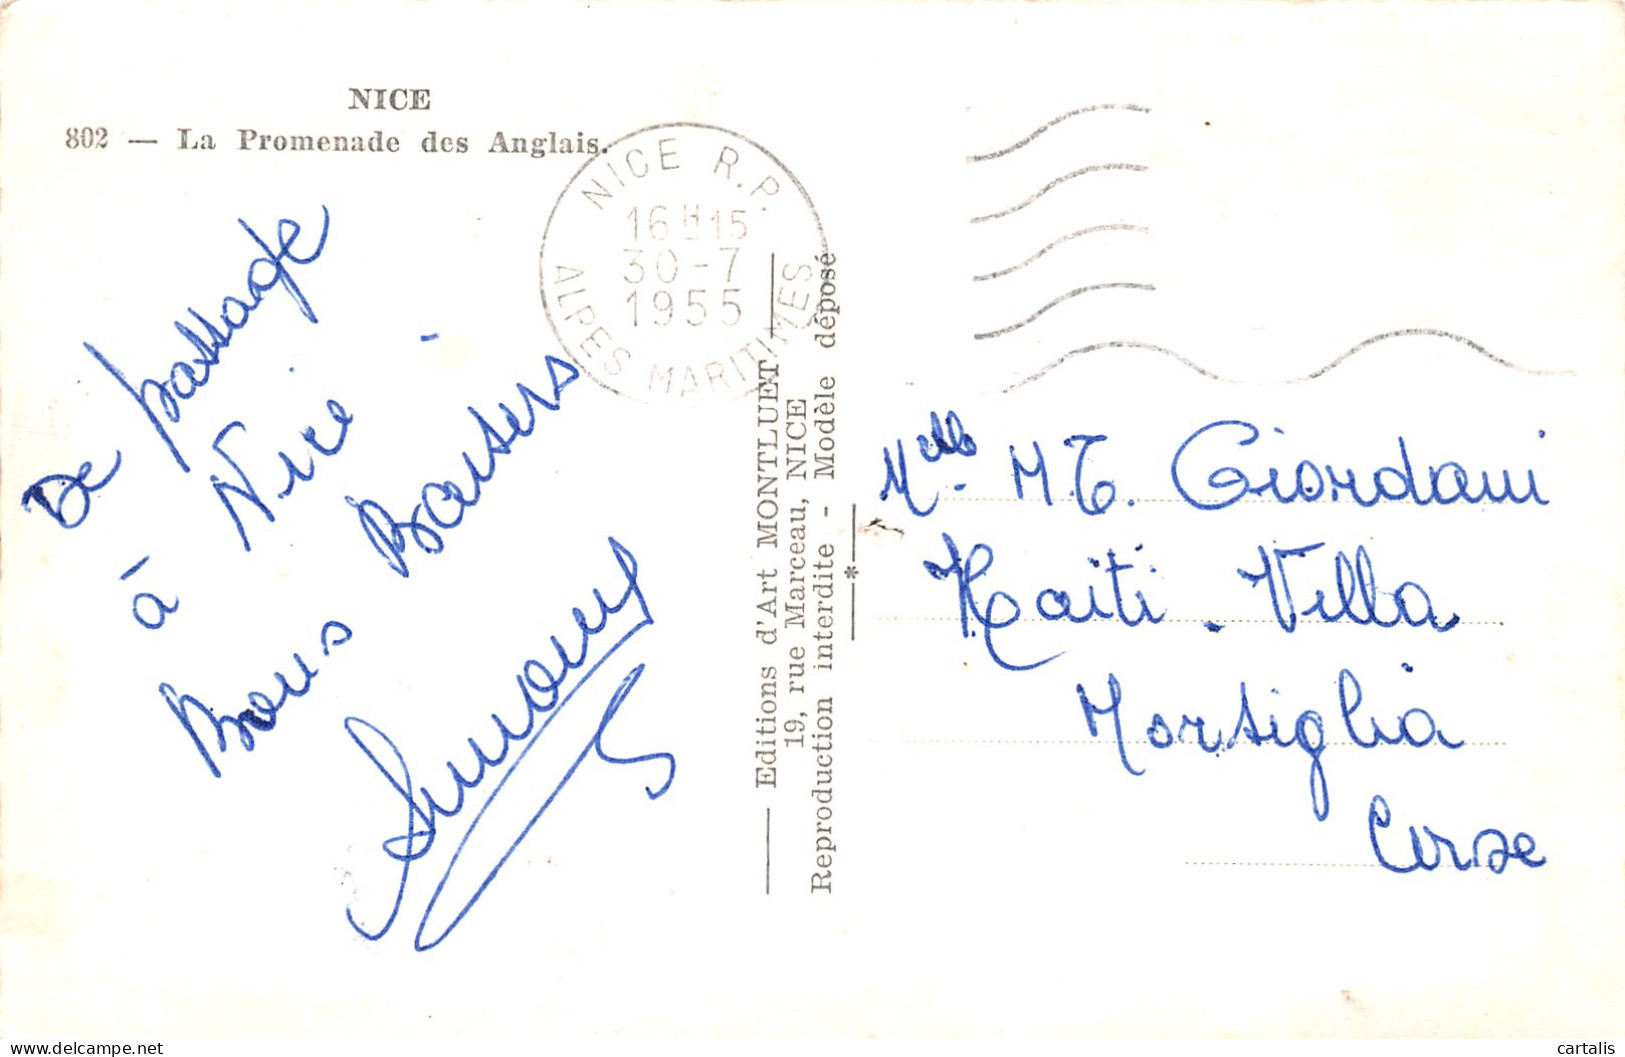 NICE
802 — La Promenade des Anglais.
NICE R.P.
16H15
30-7
1955
ALPES MARITIMES
De passage
à Nice
Bons Baisers
Editions d'Art MONTLUET
19, rue Marceau, NICE
Reproduction interdite - Modèle déposé
Melle. M T. Giordani
Haiti - Villa
Morsiglia
Corse
delcampe.net
cartalis